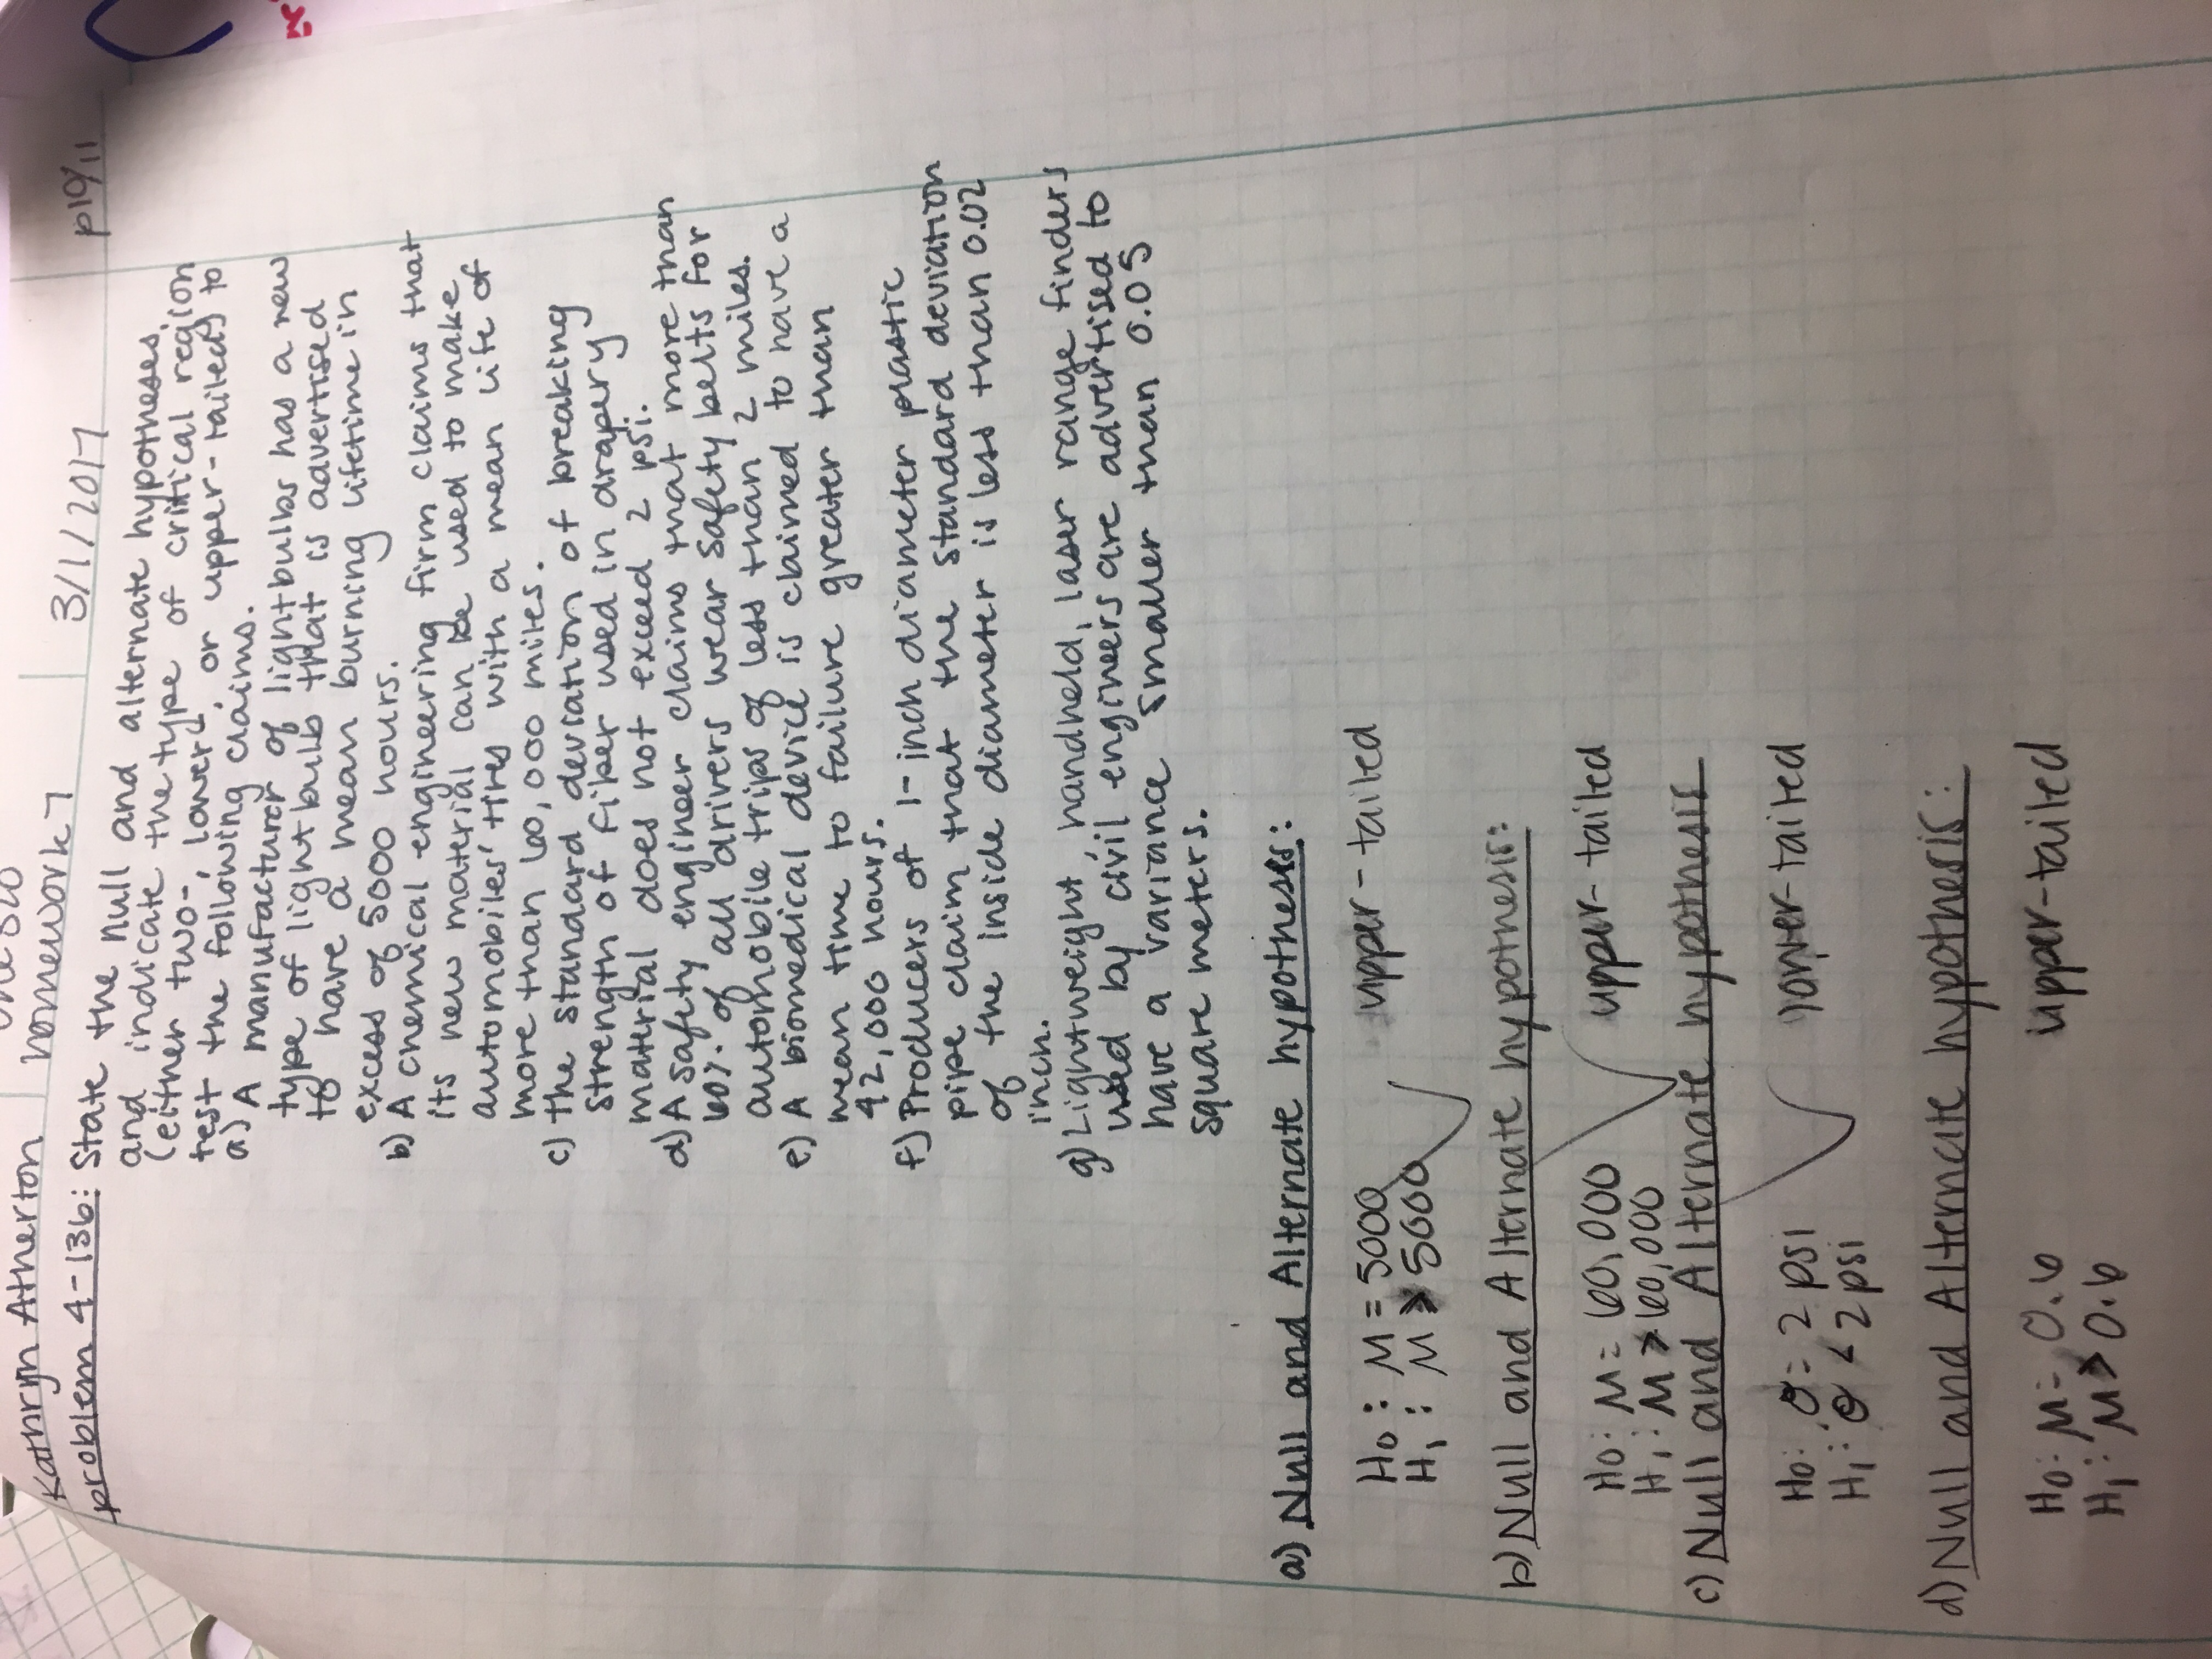 Kathryn Atherton
homework 7
3/1/2017
p10/11
problem 4-136: State the null and alternate hypotheses,
and indicate the type of critical region
(either two-, lower-, or upper-tailed) to
test the following claims.
a) A manufacturer of lightbulbs has a new
type of lightbulb that is advertised
to have a mean burning lifetime in
excess of 5000 hours.
b) A chemical engineering firm claims that
its new material can be used to make
automobiles' tires with a mean life of
more than 60,000 miles.
c) the standard deviation of breaking
strength of fiber used in drapery
material does not exceed 2 psi.
d) A safety engineer claims that more than
60% of all drivers wear safety belts for
automobile trips of less than 2 miles.
e) A biomedical device is claimed to have a
mean time to failure greater than
42,000 hours.
f) Producers of 1-inch diameter plastic
pipe claim that the standard deviation
of the inside diameter is less than 0.02
inch.
g) Lightweight, handheld, laser range finders
used by civil engineers are advertised to
have a variance smaller than 0.05
square meters.
a) Null and Alternate hypothesis:
H₀: μ = 5000 upper-tailed
H₁: μ > 5000
b) Null and Alternate hypothesis:
H₀: μ = 60,000 upper-tailed
H₁: μ > 60,000
c) Null and Alternate hypothesis
H₀: σ = 2 psi lower-tailed
H₁: σ < 2 psi
d) Null and Alternate hypothesis:
H₀: μ = 0.6 upper-tailed
H₁: μ > 0.6